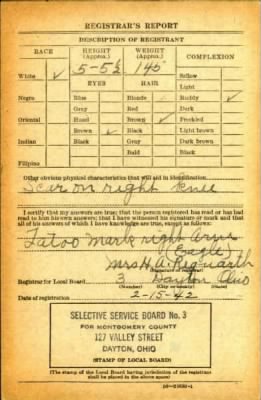 REGISTRAR'S REPORT
DESCRIPTION OF REGISTRANT
RACE HEIGHT (Approx.) WEIGHT (Approx.) COMPLEXION
5-5½ 145
White ✓ Sallow
EYES HAIR Light
Negro Blue Blonde Ruddy ✓
Gray Red Dark
Oriental Hazel Brown ✓ Freckled
Brown ✓ Black Light brown
Indian Black Gray Dark brown
Bald Black
Filipino
Other obvious physical characteristics that will aid in identification
Scar on right knee
I certify that my answers are true; that the person registered has read or has had
read to him his own answers; that I have witnessed his signature or mark and that
all of his answers of which I have knowledge are true, except as follows:
Tatoo Mark right Arm
(Eagle)
Mrs H. A.
(Signature of registrar)
Registrar for Local Board 3 Dayton Ohio
(Number) (City or county) (State)
Date of registration 2-15-42
SELECTIVE SERVICE BOARD No. 3
FOR MONTGOMERY COUNTY
127 VALLEY STREET
DAYTON, OHIO
(STAMP OF LOCAL BOARD)
(The stamp of the Local Board having jurisdiction of the registrant
shall be placed in the above space.)